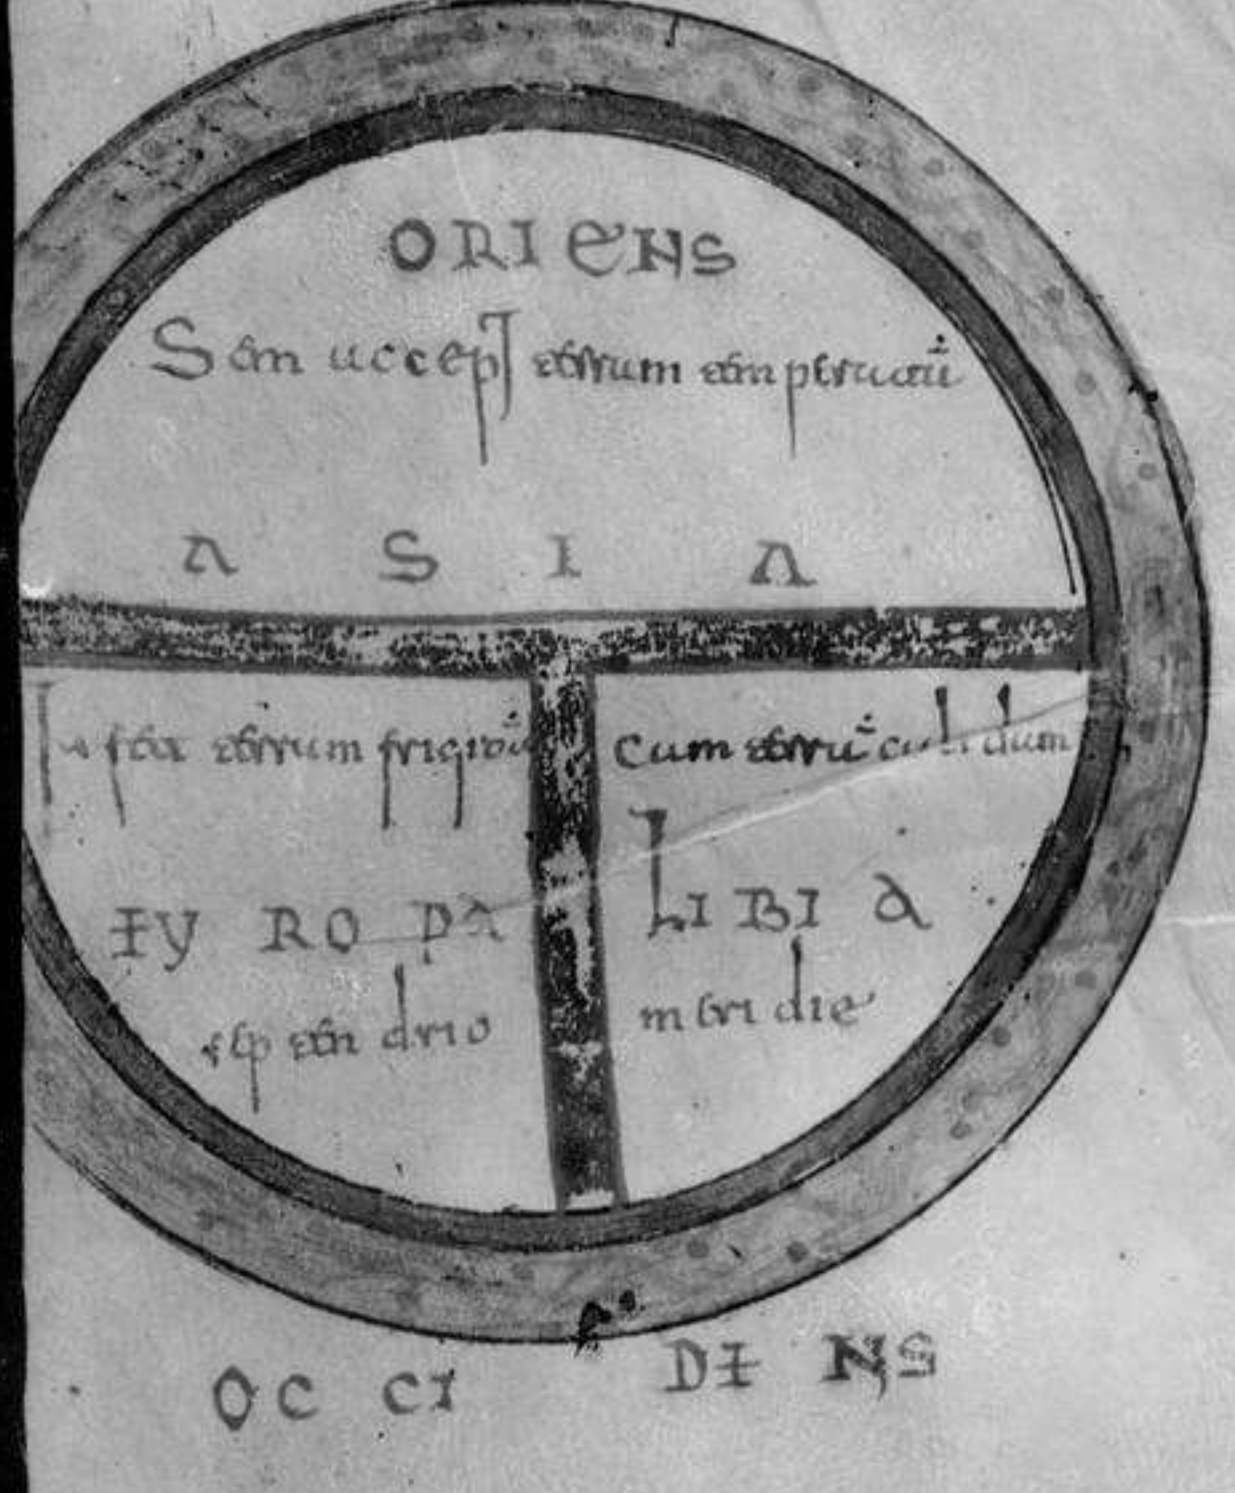 ORIENS
Sem accepit terram temperatā
A S I A
Iafet terram frigidā
Cam terrā calidam
EY RO PA
LI BI A
septendrio
meridie
OC CI DE NS